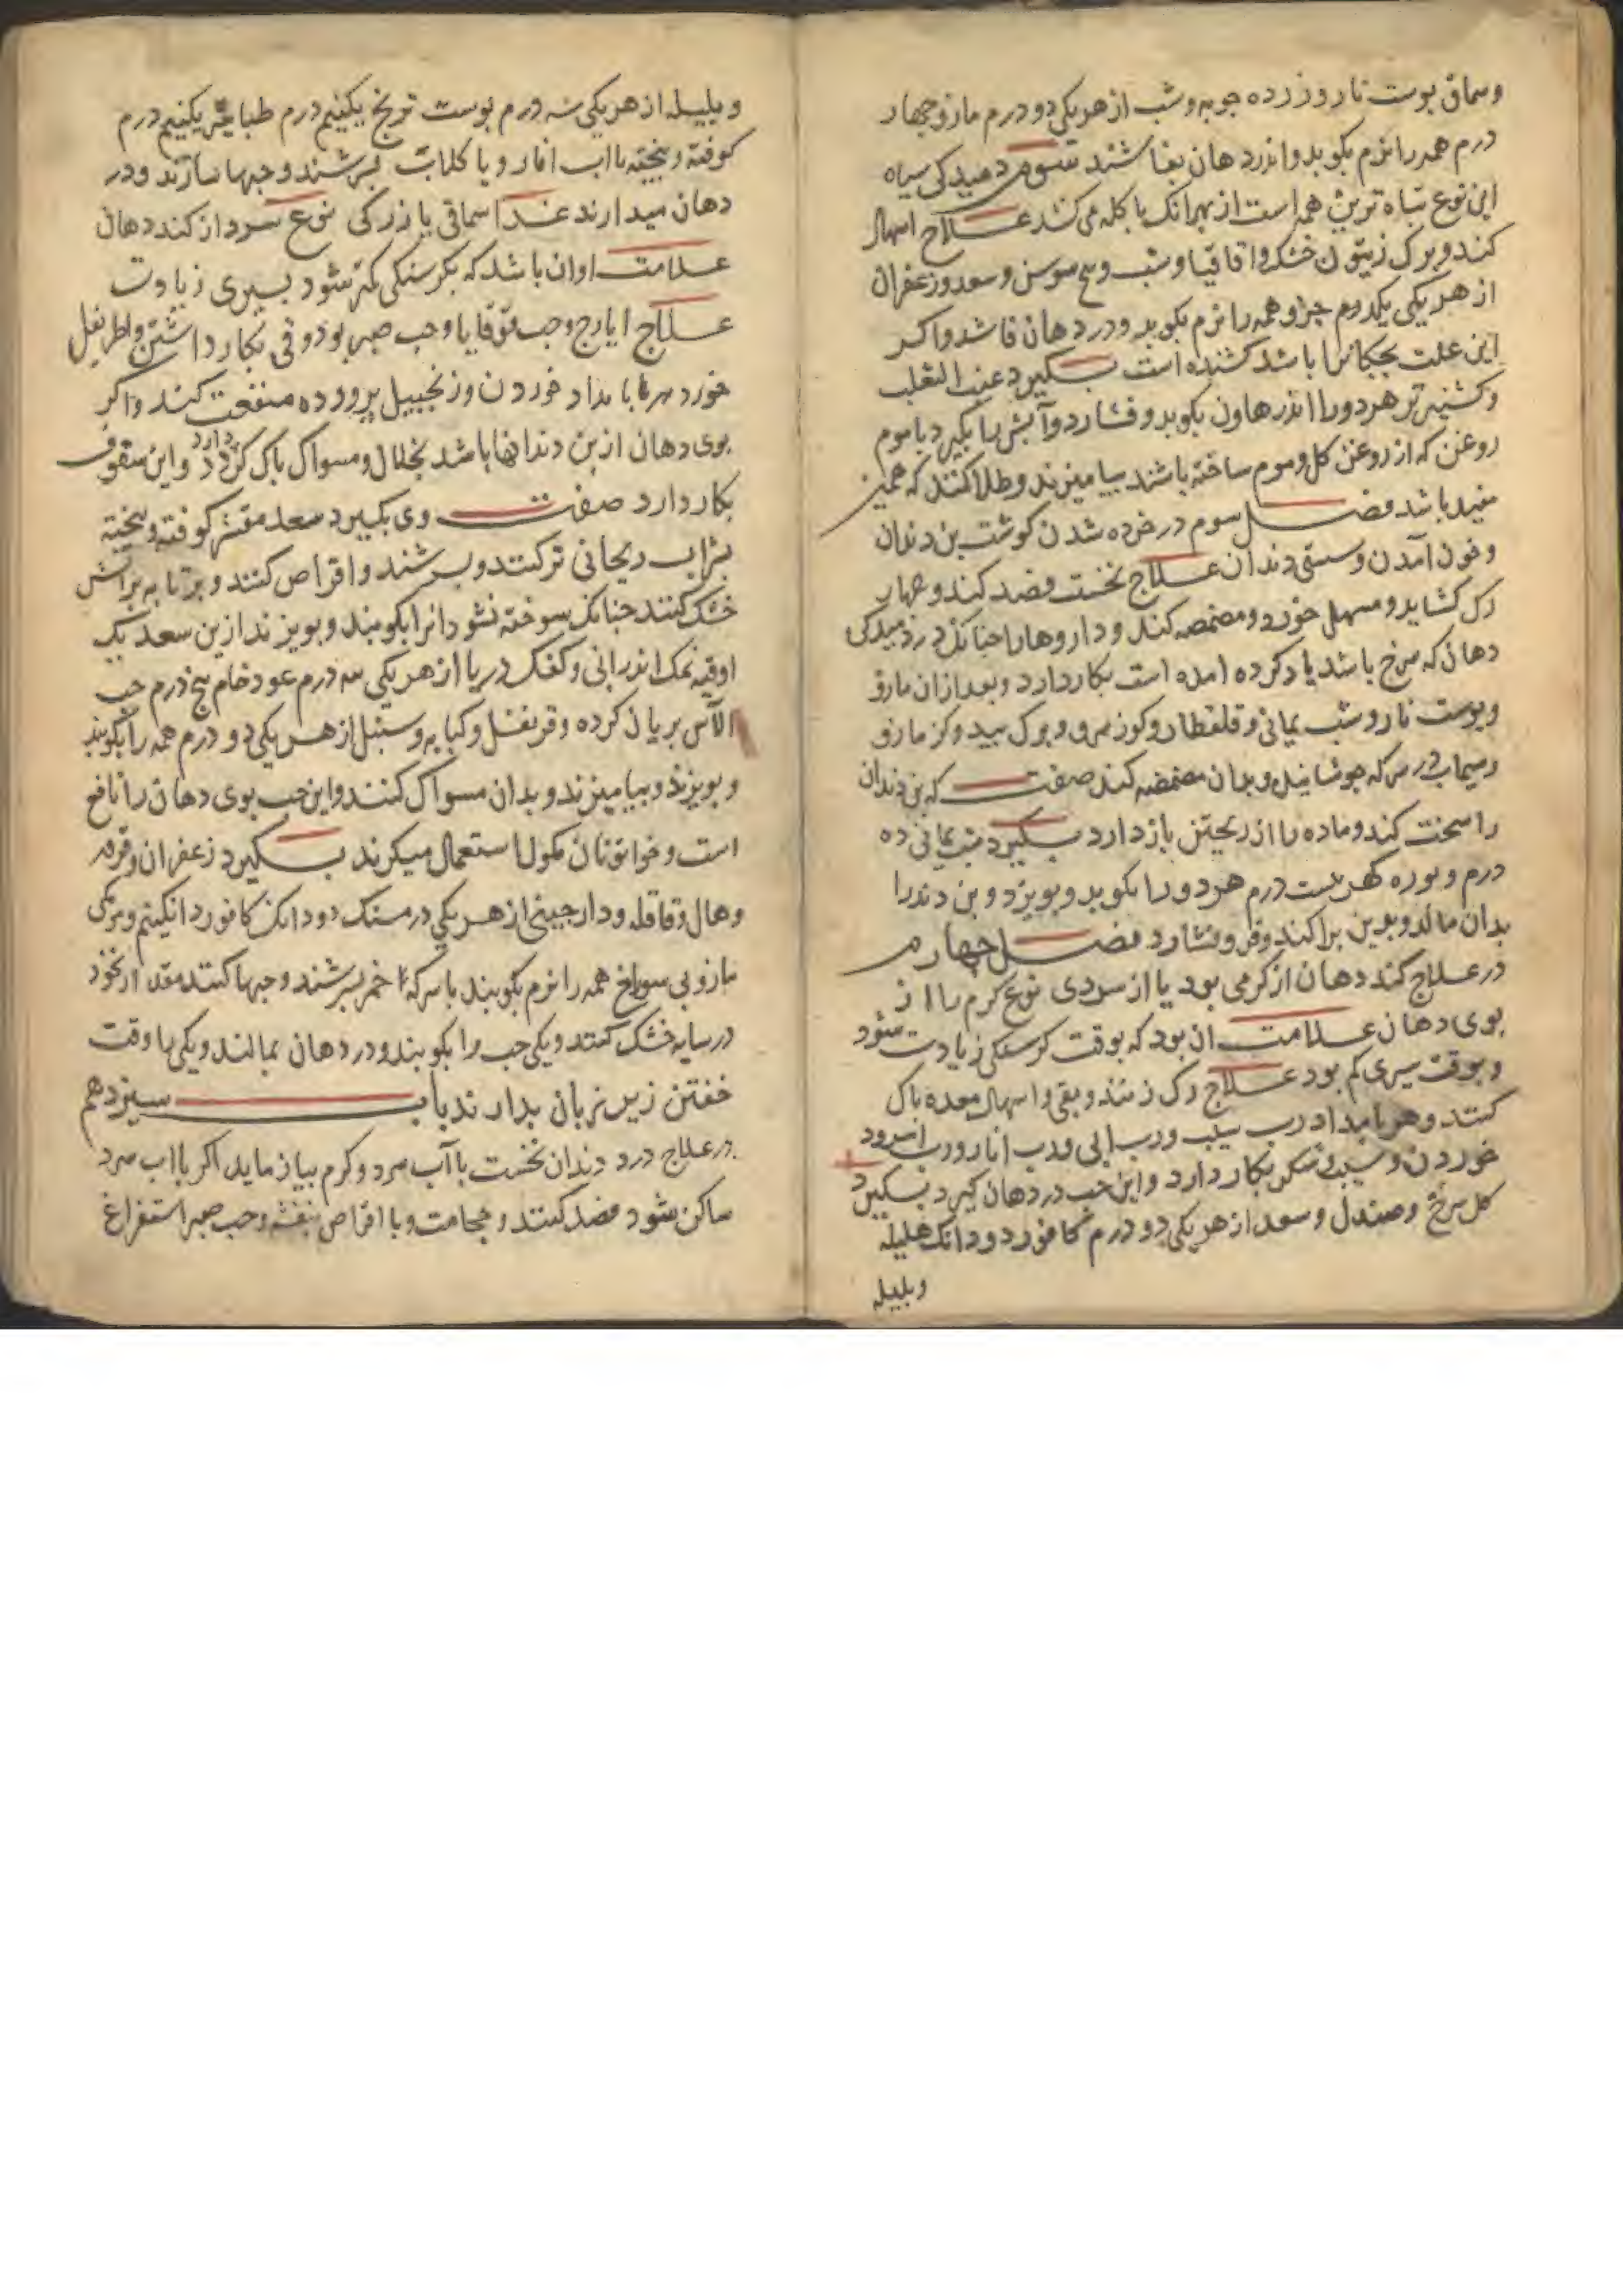 وسماق پوست نار وزرده جوبه وشب از هر یکی دو درم مازو چهار
درم همه را نرم بکوبد واندر دهان بفاشند سوم دمیدکی سیاه
این نوع تباه ترین همه است از بهر انک باکله می کشد علاج اسهال
کند وبرک زیتون خشک واقاقیا وشب وبیخ سوسن وسعد وزعفران
از هر یکی یکدرم جزو همه را نرم بکوبد ودر دهان فاشد واکر
این علت باشد کشنده است بکیرد عنب الثعلب
وکشنیز تر هر دو را اندر هاون بکوبد وفشارد وآبش را بکیرد باموم
روغن که از روغن کل وموم ساخته باشند بیامیزند وطلا کنند که همین
مفید باشد فصل سوم در خرده شدن کوشت بن دندان
وخون آمدن وسستی دندان علاج نخست فصد کند وچهار
رک کشاید ومسهل خورد ومضمضه کند وداروها را چنانک در دمیدکی
دهان که سرخ باشد یاد کرده امده است بکار دارد وبعد ازان مازو
وپوست نار وشب یمانی وقلقطار وکوز سرو وبرک بید وکز مازو
در سرکه جوشانیده وبدان مضمضه کند صفت که بن دندان
را سخت کند وماده را از ریختن باز دارد بکیرد شب یمانی ده
درم وبوره بیست درم هر دو را بکوبد وبویزد وبن دندرا
بدان مالد فصل چهارم
در علاج کند دهان از کرمی بود یا از سردی نوع کرم را از
بوی دهان علامت ان بود که بوقت کرسنکی زیادت شود
وبوقت سیری کم بود علاج رک زنند وبقی واسهال معده پاک
کنند وهر بامداد رب سیب ورب ابی ورب انار ورب امرود
خوردن وسیب وشکر بکار دارد واین حب در دهان کیرد بکیرد
کل سرخ وصندل وسعد از هر یکی دو درم کافور دو دانک هلیله
وبلیله
وبلیله از هر یکی سه درم پوست ترنج یکنیم درم طباشیر یکنیم درم
کوفته وبیخته با اب انار ویا کلاب بسرشند وحبها سازند ودر
دهان میدارند غذا سماقی یا زرکی نوع سرد از کند دهان
علامت او ان باشد که بکرسنکی کمتر شود بسیری زیادت
علاج ایارج وحب قوقایا وحب صبر بود وقی بکار داشتن واطریفل
خورد هر بامداد خوردن وزنجبیل پرورده منفعت کند واکر
بوی دهان از بن دندانها باشد بخلال ومسواک پاک کردن دارد واین سفوف
بکار دارد صفت وی بکیرد سعد مقشر کوفته وبیخته
بشراب ریحانی تر کنند وبسرشند واقراص کنند وبر تابه بر اتش
خشک کنند چنانک سوخته نشود انرا بکوبند وبویزند ازین سعد یک
اوقیه نمک اندرانی وکفک دریا از هر یکی سه درم عود خام پنج درم حب
الآس بریان کرده وقرنفل وکبابه وسنبل از هر یکی دو درم همه را بکوبند
وبویزند وبیامیزند وبدان مسواک کنند واین حب بوی دهان را نافع
است وخواتونان مکول استعمال میکرند بکیرد زعفران وقرفه
وهال وقاقله ودارچینی از هر یکی درمسنک دو دانک کافور دانکنیم ومرمکی
مازو بی سوراخ همه را نرم بکوبند با سرکه خمر بسرشند وحبها کنند مقدار نخود
در سایه خشک کنند ویکی حب را بکوبند ودر دهان بمالند ویکی را وقت
خفتن زیر زبان بدارند باب سیزدهم
در علاج درد دندان نخست با آب سرد وکرم بیازماید اکر با اب سرد
ساکن شود فصد کنند وحجامت وبا اقراص بنفشه وحب صبر استفراغ